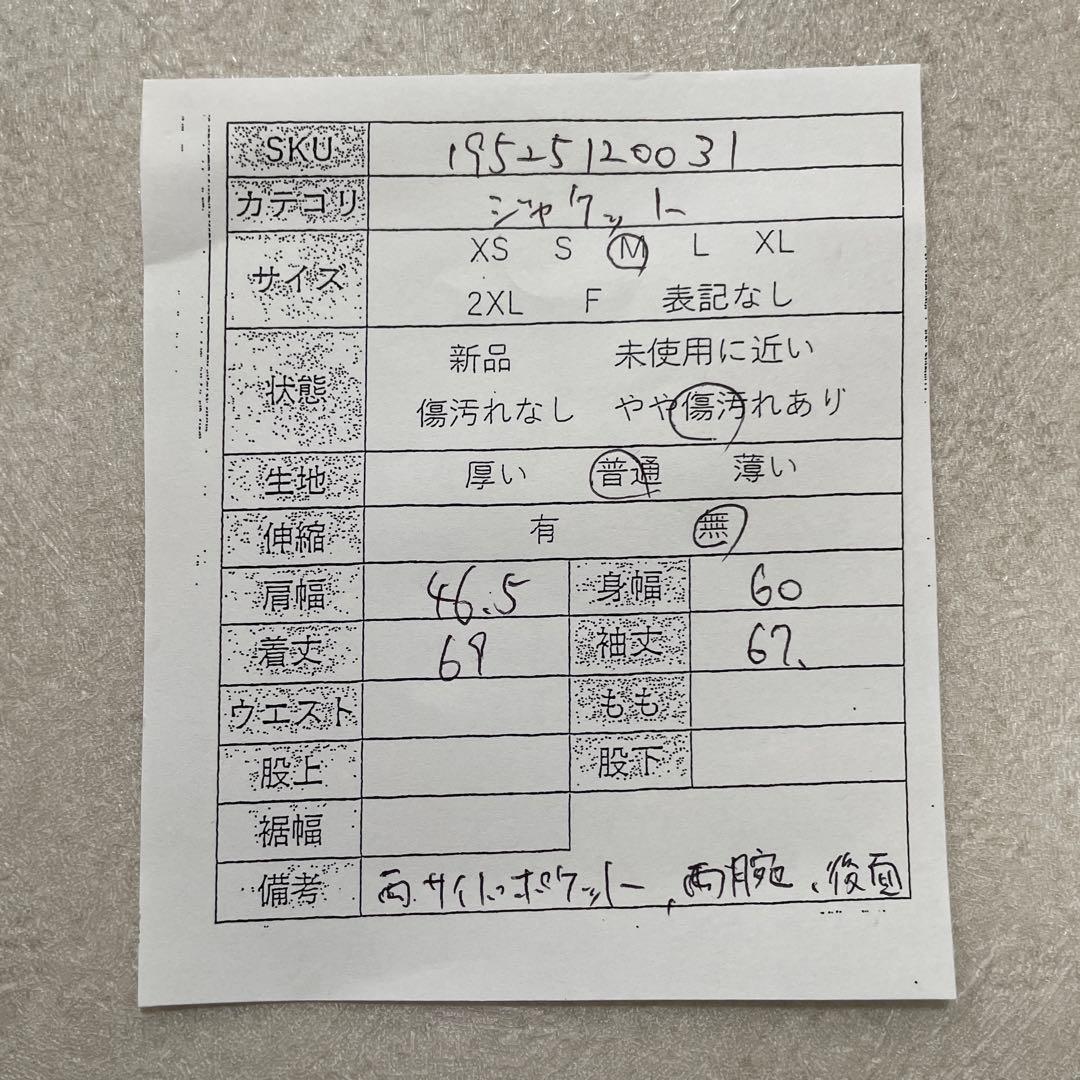 SKU 19525120031
カテゴリ ジャケット
サイズ XS S M L XL
2XL F 表記なし
状態 新品 未使用に近い
傷汚れなし やや傷汚れあり
生地 厚い 普通 薄い
伸縮 有 無
肩幅 46.5 身幅 60
着丈 69 袖丈 67.
ウエスト もも
股上 股下
裾幅
備考 両サイドポケット、両腕、後面